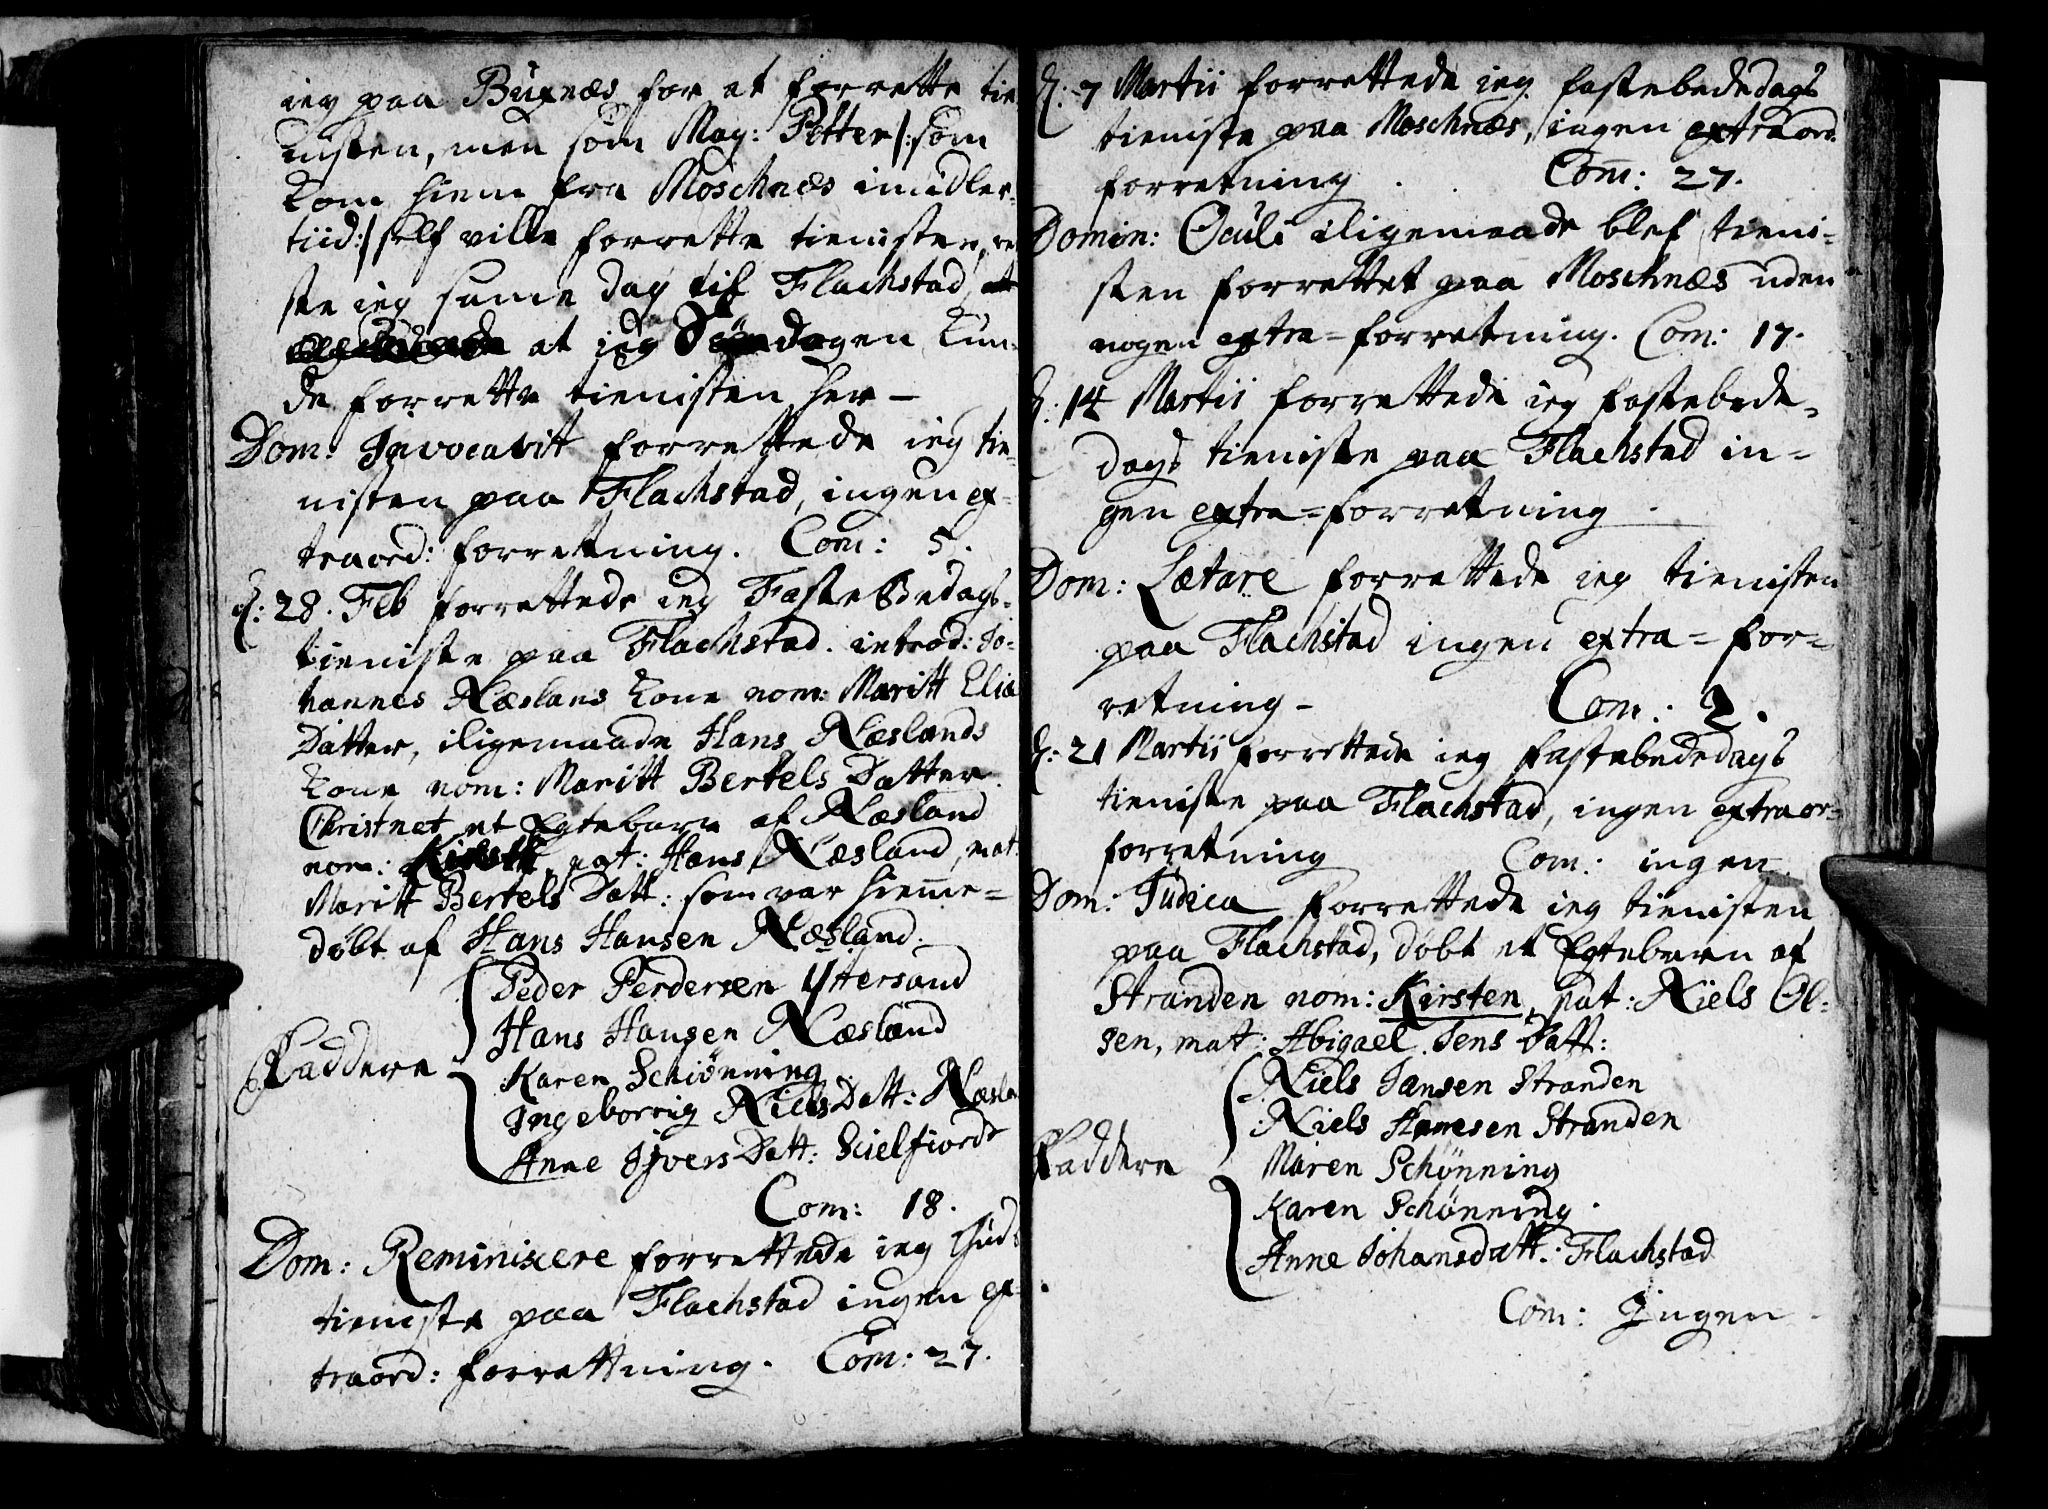 ieg paa Buxnæs for at forrette tie
nisten, men som Mag: Petter /: som
kom hiem fra Moschnæs imidler-
tiid :/ self ville forrette tienisten, rei
ste ieg same dag til Flachstad,
at jeg Søndagen kun-
de forrette tienisten her –
Dom: Invocavit forrettede ieg tie-
nisten paa Flachstad, ingen ex-
traord: forretning. Com: 5.
d: 28. Feb forrettede ieg FasteBedags-
tieniste paa Flachstad. introd: Jo-
hannes Næslans kone nom: Maritt Elia
Datter, iligemaade Hans Næslands
kone nom: Maritt Bertels Datter.
Christnet et Egtebarn af Næsland
nom: pat: Hans Næsland, mat:
Maritt Bertels Datt: som var hieme-
døbt af Hans Hansen Næsland.
Peder Perdersen Yttersand
Hans Hansen Næsland
Faddere
Karen Schiønning
Ingeborrig Niels Datt: Næsla
Anne Ifvers Datt: Skielfiord
Com: 18.
Dom: Reminiscere forrettede ieg Guds
tieniste paa Flachstad ingen ex-
traord: forrettning. Com: 27.
d: 7 Martii forrettede ieg fastebededags
tieniste paa Moschnæs, ingen extraord.
forretning. Com: 27.
Domin: Oculi iligemaade blef tieni-
sten forrettet paa Moschnæs uden
nogen extra-forretning. Com: 17.
d: 14 Martii forrettede ieg fastebede-
dags tieniste paa Flachstad in-
gen extra-forretning.
Dom: Lætare forrettede ieg tienisten
paa Flachstad ingen extra-for-
retning – Com: 2.
d: 21 Martii forrettede ieg fastebededags
tieniste paa Flachstad, ingen extraor-
forretning Com: ingen.
Dom: Judica forrettede ieg tienisten
paa Flachstad, døbt et Egtebarn af
Stranden nom: Kirsten, pat: Niels Ol-
sen, mat: Abigael Jens Datt:
Niels Jansen Stranden
Niels Hansen Stranden
Faddere
Maren Schønning
Karen Schønning.
Anne Johansdatt: Flachstad
Com: Ingen